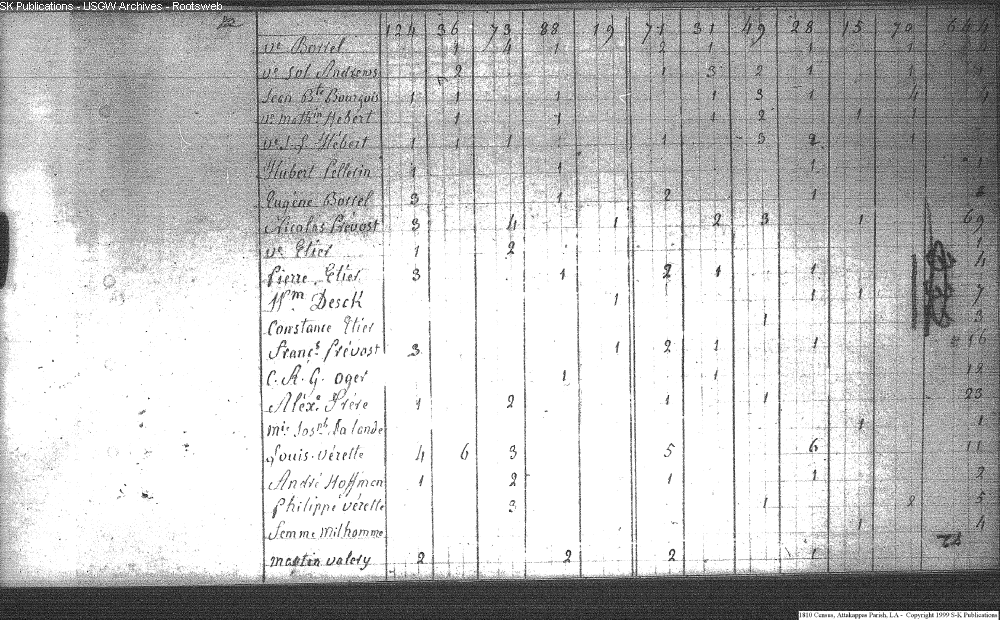 SK Publications - USGW Archives - Rootsweb
124 36 73 88 19 71 31 49 28 15 70 644
ve Borrel 1 4 1 2 1 1 1
ve Sol Andrews 2 1 3 2 1 1
Jean Bte Bourgois 1 1 1 1 3 1 4 4
ve mathin Hebert 1 1 1 2 1 1
ve J. S. Hébert 1 1 1 1 3 2 1
Hubert Pellerin 1 1 1 1
Eugène Borrel 3 1 2 1
Nicolas Prévost 3 4 1 2 3 1 69
ve Etier 1 2 1
Pierre Etier 3 1 2 1 1 4
Wm Desck 1 1 1 7
Constance Etier 1 3
Françs Prévost 3 1 2 1 1 16
C. A. G. Oger 1 1 18
Aléxe Frére 1 2 1 1 23
Mie Josph Lalande 1 1
Louis Vérette 4 6 3 5 6 11
André Hoffmen 1 2 1 1 2
Philippe Vérette 3 1 2 5
Femme Milhomme 1 4
martin valery 2 2 2 1
1810 Census, Attakappas Parish, LA - Copyright 1999 S-K Publications